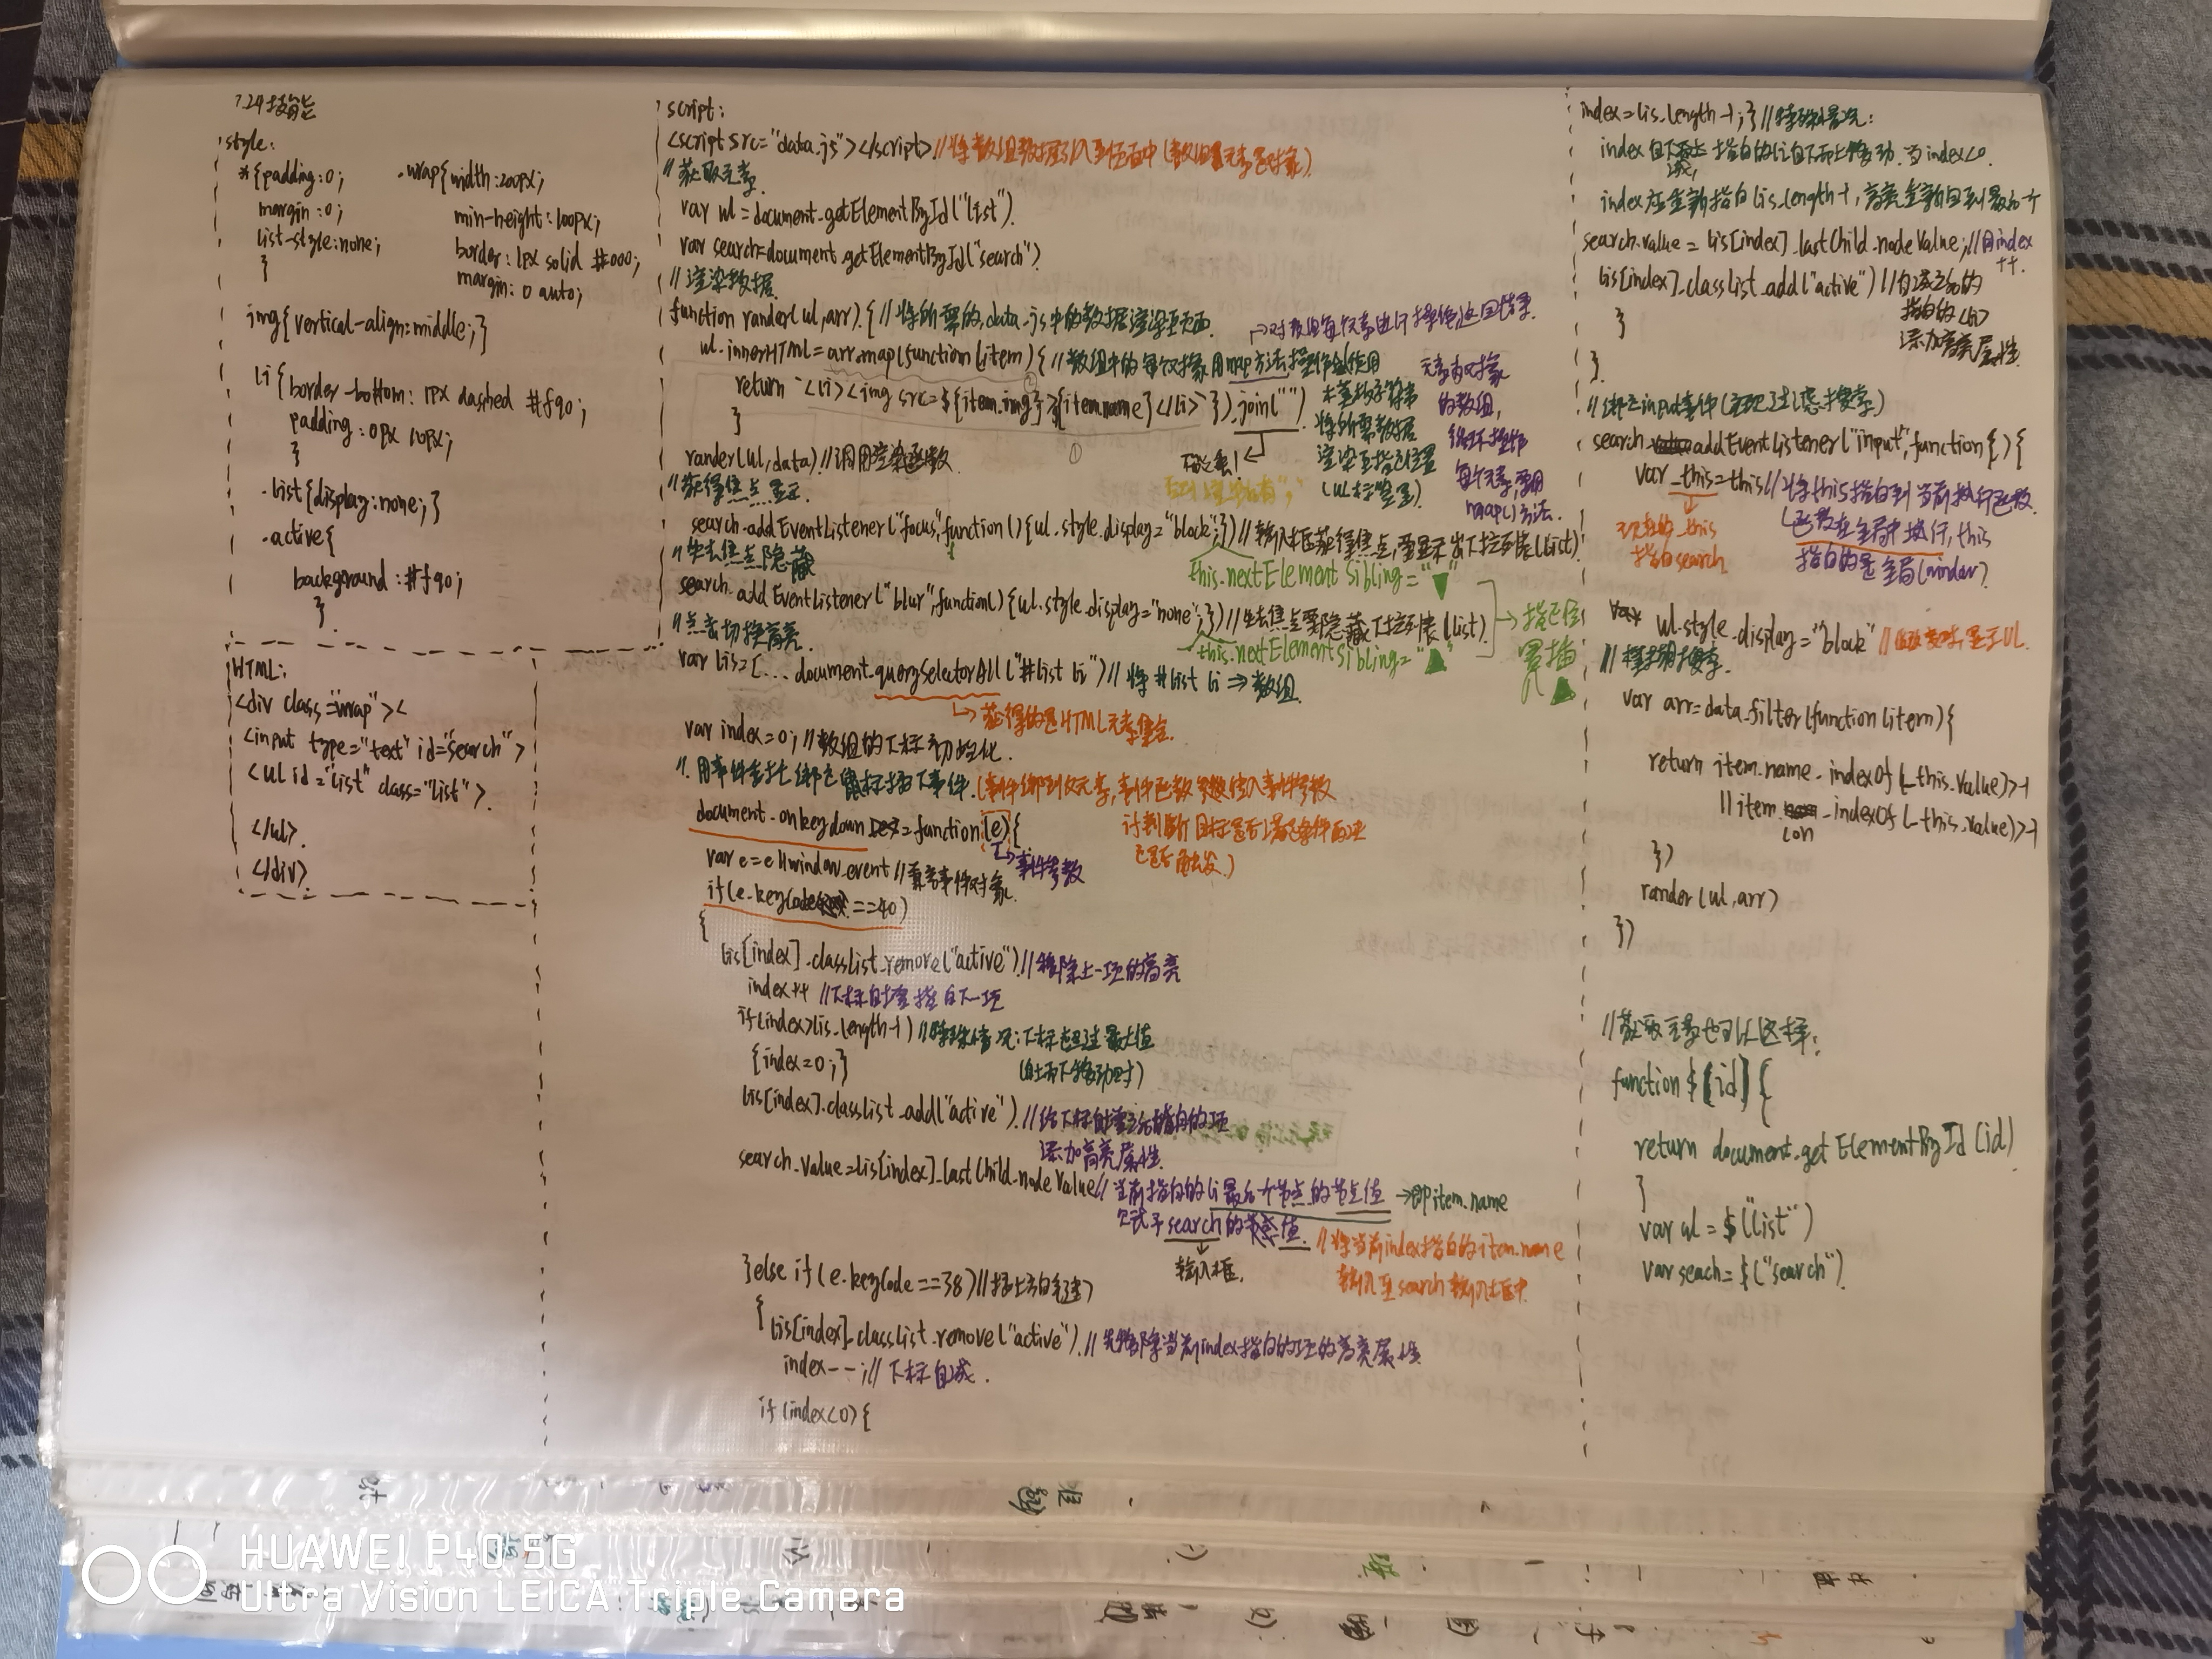 7.24技能
style:
*{padding:0;
margin:0;
list-style:none;
}
.wrap{width:200px;
min-height:100px;
border:1px solid #000;
margin:0 auto;
img{vertical-align:middle;}
li{border-bottom:1px dashed #f90;
padding:0px 10px;
}
.list{display:none;}
.active{
background:#f90;
}
HTML:
<div class="wrap"><
<input type="text" id="search">
<ul id="list" class="list">
</ul>
</div>
script:
<script src="data.js"></script>//将数组数据引入到页面中(数组里元素是对象)
//获取元素
var ul=document.getElementById("list")
var search=document.getElementById("search")
//渲染数据
function rander(ul,arr){//将所需的,data.js中的数据渲染至页面
→对数组每个元素进行操作,返回结果
ul.innerHTML=arr.map(function(item){//数组中的每个对象用map方法操作
return `<li><img src=${item.img}>${item.name}</li>`}).join("")
}
将所需数据
渲染至指定位置
(ul标签里)
元素为对象
的数组,
每个元素,要用
map()方法.
rander(ul,data)//调用渲染函数
//获得焦点显示
search.addEventListener("focus",function(){ul.style.display="block";})//输入框获得焦点,要显示出下拉列表(list)
this.nextElementSibling="▼"
//失去焦点隐藏
search.addEventListener("blur",function(){ul.style.display="none";})//失去焦点要隐藏下拉列表(list)
this.nextElementSibling="▲"
//点击切换高亮
var lis=[...document.querySelectorAll("#list li")//将#list li⇒数组
→获得的是HTML元素集合
var index=0;//数组的下标初始化
//用事件委托绑定鼠标按下事件.(事件绑到父元素,事件函数传入事件参数
document.onkeydown=function(e){
→事件参数
var e=e||window.event//兼容事件对象
if(e.keyCode==40)
{
lis[index].classList.remove("active")//移除上一项的高亮
index++ //下标自增指向下一项
if(index>lis.length-1)//特殊情况:下标超过最大值
{index=0;} (自上而下移动时)
lis[index].classList.add("active")//给下标自增之后指向的项
添加高亮属性
search.value=lis[index].lastChild.nodeValue//当前指向的li最后一个节点的节点值→即item.name
输入框.
//将当前index指向的item.name
输入至search输入框中
}else if(e.keyCode==38)//按上方向键)
{lis[index].classList.remove("active")//先移除当前index指向的项的高亮属性
index--;//下标自减.
if(index<0){
index=lis.length-1;}//特殊情况:
index自减,指向的li自下而上移动,当index<0.
index应重新指向lis.length-1,高亮重新回到最后一个
search.value=lis[index].lastChild.nodeValue;//同index
++.
lis[index].classList.add("active")//自减之后的
指向的<li>
添加高亮属性
}
}
//绑定input事件(实现过滤搜索)
search.addEventListener("input",function(){
var _this=this//将this指向到当前执行函数
(函数在全局中执行,this
指向的是全局(window)
现在的_this
指向search
ul.style.display="block"
var arr=data.filter(function(item){
return item.name.indexOf(_this.value)>-1
||item.con.indexOf(_this.value)>-1
})
rander(ul,arr)
})
//获取元素也可以这样:
function $(id){
return document.getElementById(id)
}
var ul=$("list")
var seach=$("search")
HUAWEI P40 5G
Ultra Vision LEICA Triple Camera